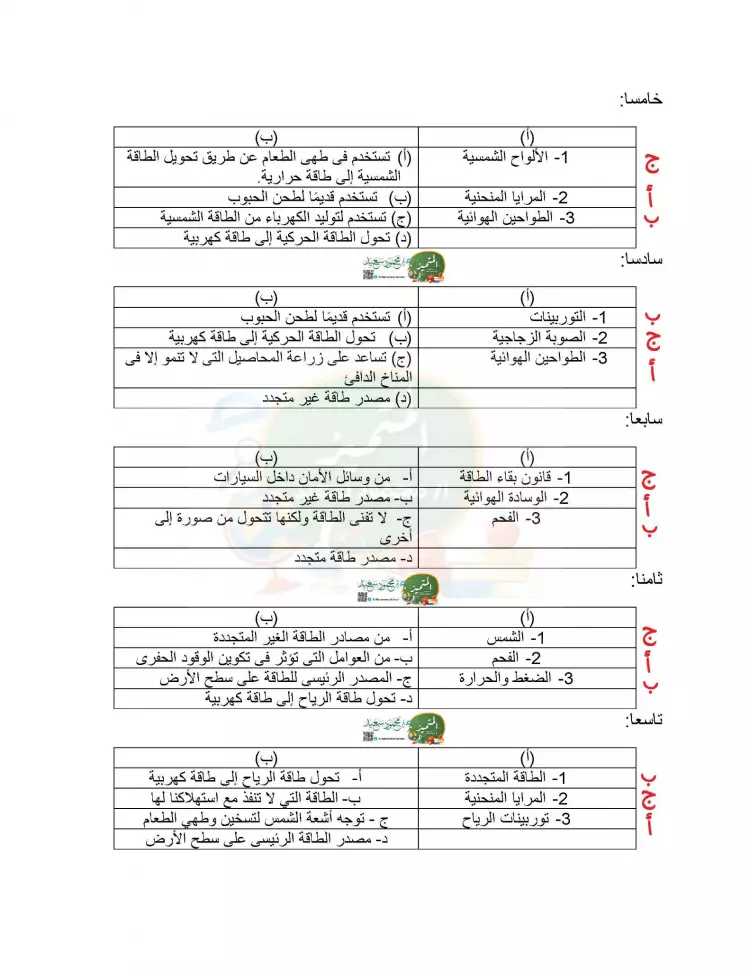 خامسا:
(أ) (ب)
ج 1- الألواح الشمسية (أ) تستخدم فى طهى الطعام عن طريق تحويل الطاقة
الشمسية إلى طاقة حرارية.
أ 2- المرايا المنحنية (ب) تستخدم قديمًا لطحن الحبوب
ب 3- الطواحين الهوائية (ج) تستخدم لتوليد الكهرباء من الطاقة الشمسية
(د) تحول الطاقة الحركية إلى طاقة كهربية
سادسا:
(أ) (ب)
ب 1- التوربينات (أ) تستخدم قديمًا لطحن الحبوب
ج 2- الصوبة الزجاجية (ب) تحول الطاقة الحركية إلى طاقة كهربية
أ 3- الطواحين الهوائية (ج) تساعد على زراعة المحاصيل التى لا تنمو إلا فى
المناخ الدافئ
(د) مصدر طاقة غير متجدد
سابعا:
(أ) (ب)
ج 1- قانون بقاء الطاقة أ- من وسائل الأمان داخل السيارات
أ 2- الوسادة الهوائية ب- مصدر طاقة غير متجدد
ب 3- الفحم ج- لا تفنى الطاقة ولكنها تتحول من صورة إلى
أخرى
د- مصدر طاقة متجدد
ثامنا:
(أ) (ب)
ج 1- الشمس أ- من مصادر الطاقة الغير المتجددة
أ 2- الفحم ب- من العوامل التى تؤثر فى تكوين الوقود الحفرى
ب 3- الضغط والحرارة ج- المصدر الرئيسى للطاقة على سطح الأرض
د- تحول طاقة الرياح إلى طاقة كهربية
تاسعا:
(أ) (ب)
ب 1- الطاقة المتجددة أ- تحول طاقة الرياح إلى طاقة كهربية
ج 2- المرايا المنحنية ب- الطاقة التي لا تنفذ مع استهلاكنا لها
أ 3- توربينات الرياح ج - توجه أشعة الشمس لتسخين وطهي الطعام
د- مصدر الطاقة الرئيسى على سطح الأرض